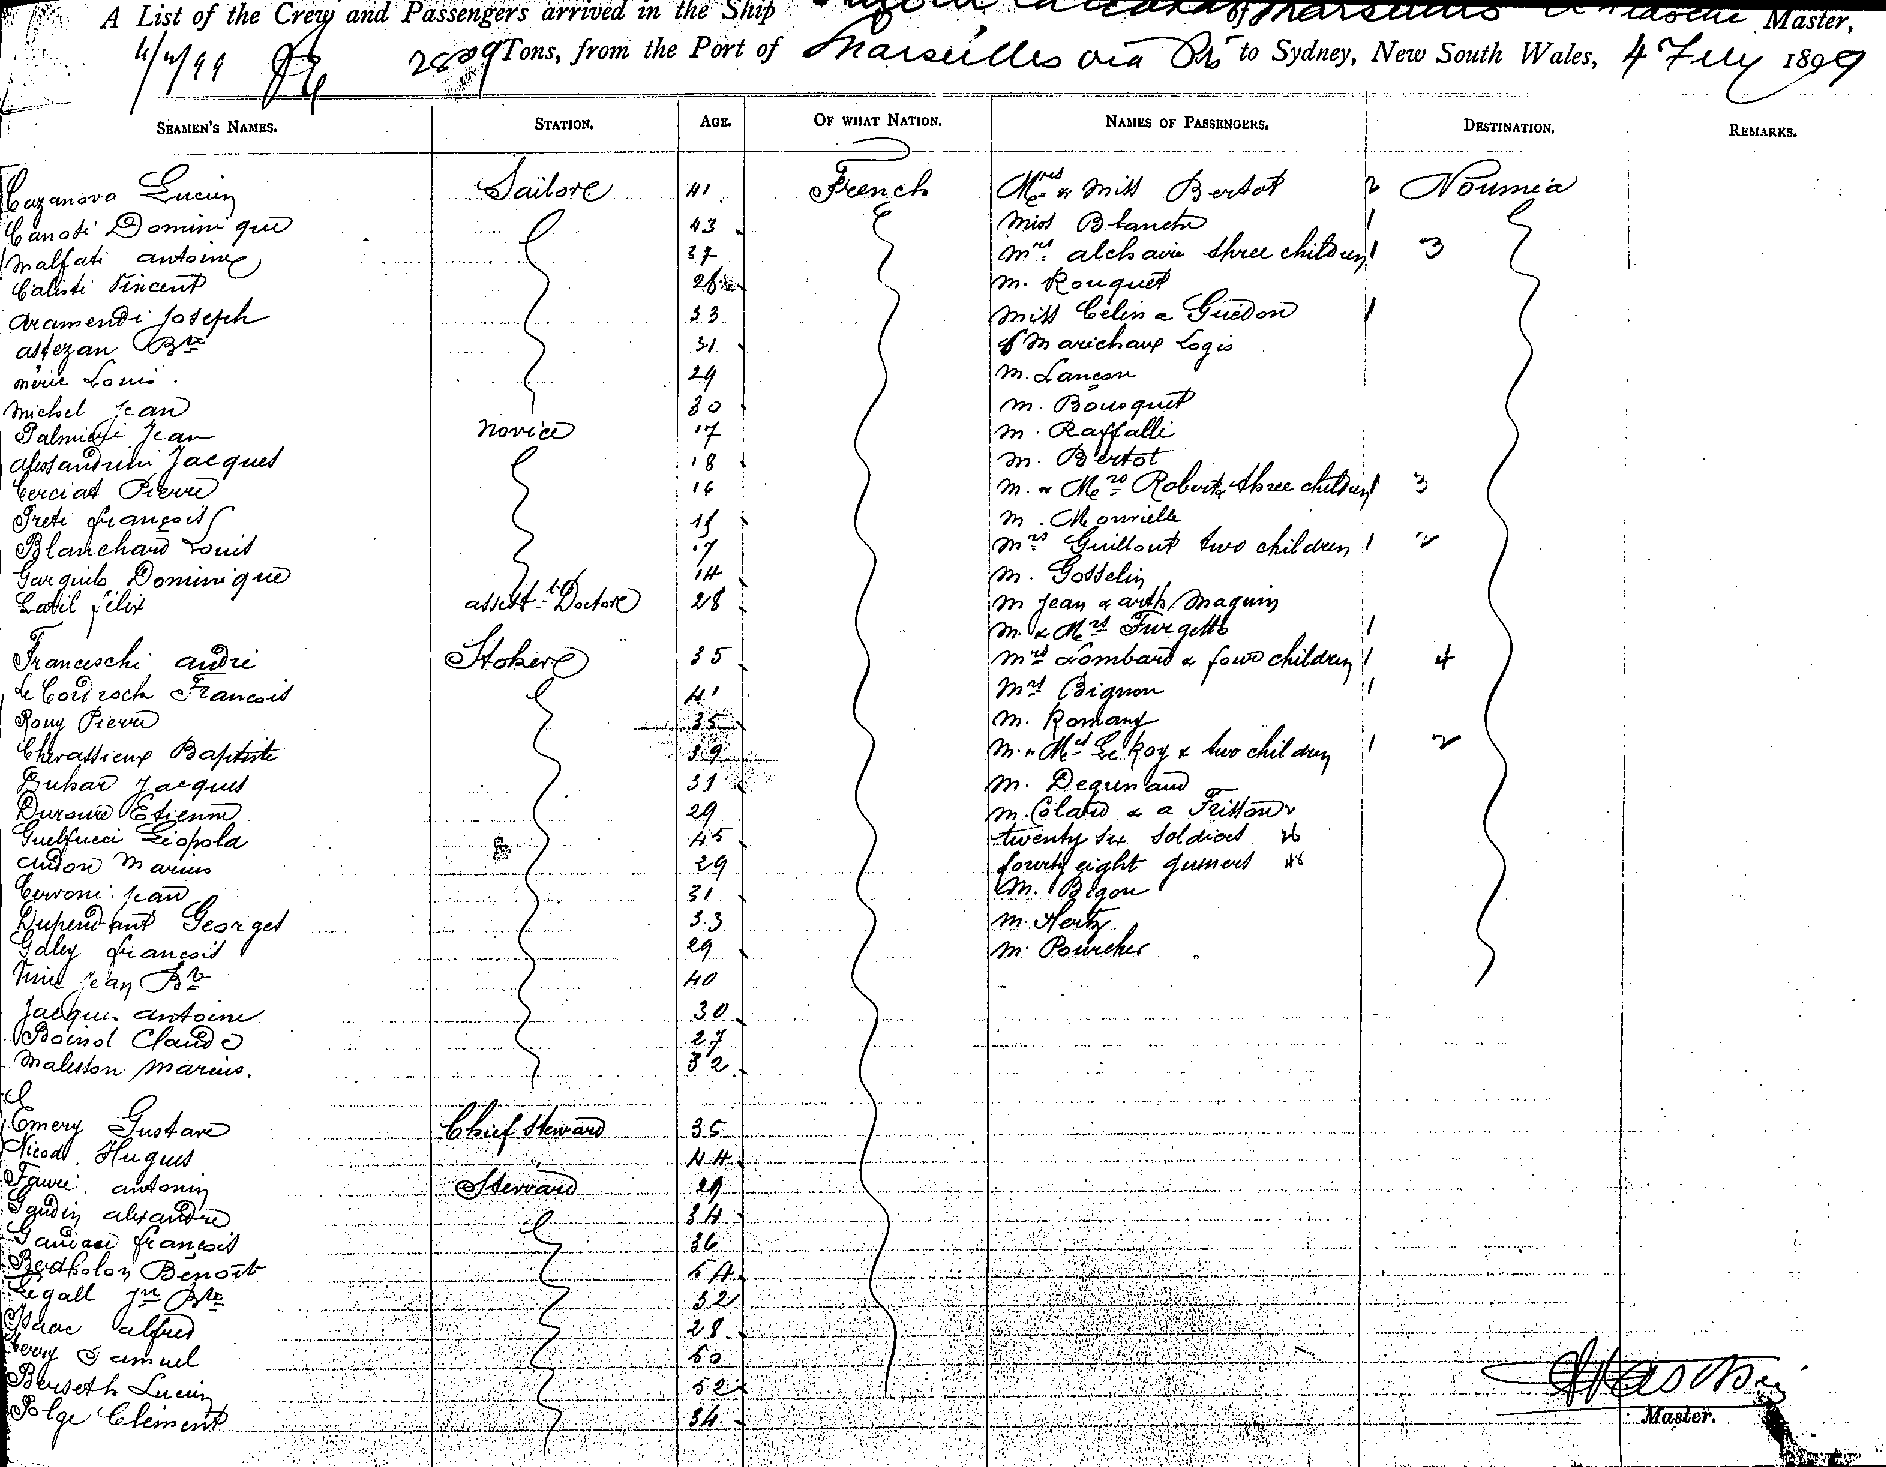 A List of the Crew and Passengers arrived in the Ship of Marseilles Master,
4/2/99 2809 Tons, from the Port of Marseilles via Pts to Sydney, New South Wales, 4 Feby 1899
SEAMEN'S NAMES. STATION. AGE. OF WHAT NATION. NAMES OF PASSENGERS. DESTINATION. REMARKS.
Cazanova Lucien Sailore 41 French Mrs & Miss Bertot 2 Noumea
Canoti Dominique 43 Miss Blanche 1
Malfati antoine 37 Mrs alchaire three children 1 3
Calisti Vincent 26 M. Rouquet
Aramendi Joseph 33 Miss Celina Guédon 1
astezan Bte 31 Marichaux Logis
Louis 29 M. Lançon
Michel Jean 30 M. Bousquet
Palmieri Jean Novice 17 M. Raffalli
Alessandrini Jacques 18 M. Bertot
Cerciat Pierre 16 M. & Mrs Robert, three children 1 3
Preti François 15 M. Mourielle
Blanchard Louis 17 Mrs Guillout two children 1 2
Garguilo Dominique 14 M. Gosselin
Latil félix assistt Doctore 28 M Jean & arth Maquin
M. & Mrs Furgetto 1
Franceschi andré Stokere 35 Mrs Lombard & four children 1 4
Le Cordroch François 41 Mrs Bignon 1
Rouy Pierre 35 M. Romany
Chevassieux Baptiste 39 M. & Mrs Le Roy & two children 1 2
Buhar Jacques 31 M. Degrenand
Duroure Etienne 29 M. Colard & a Frisson
Guelfucci Léopold 45 twenty six soldiers 26
andon Marius 29 fourty eight gunners 48
Cervoni Jean 31 M. Bigou
Dupendant Georges 33 M. Hertz
Galey françois 29 M. Pourcher
Jean Bte 40
Jacques antoine 30
Boinot Claude 27
Maleston Marius. 32
Emery Gustave Chief Steward 35
Nicod Hugues 44
Favre antonin Steward 29
Gaudin alexandre 34
françois 36
Bertholon Benoît 54
Legall Jn Bte 32
Isaac alfred 28
Samuel 50
Berseth Lucien 52
Polge Clément 34
Master.